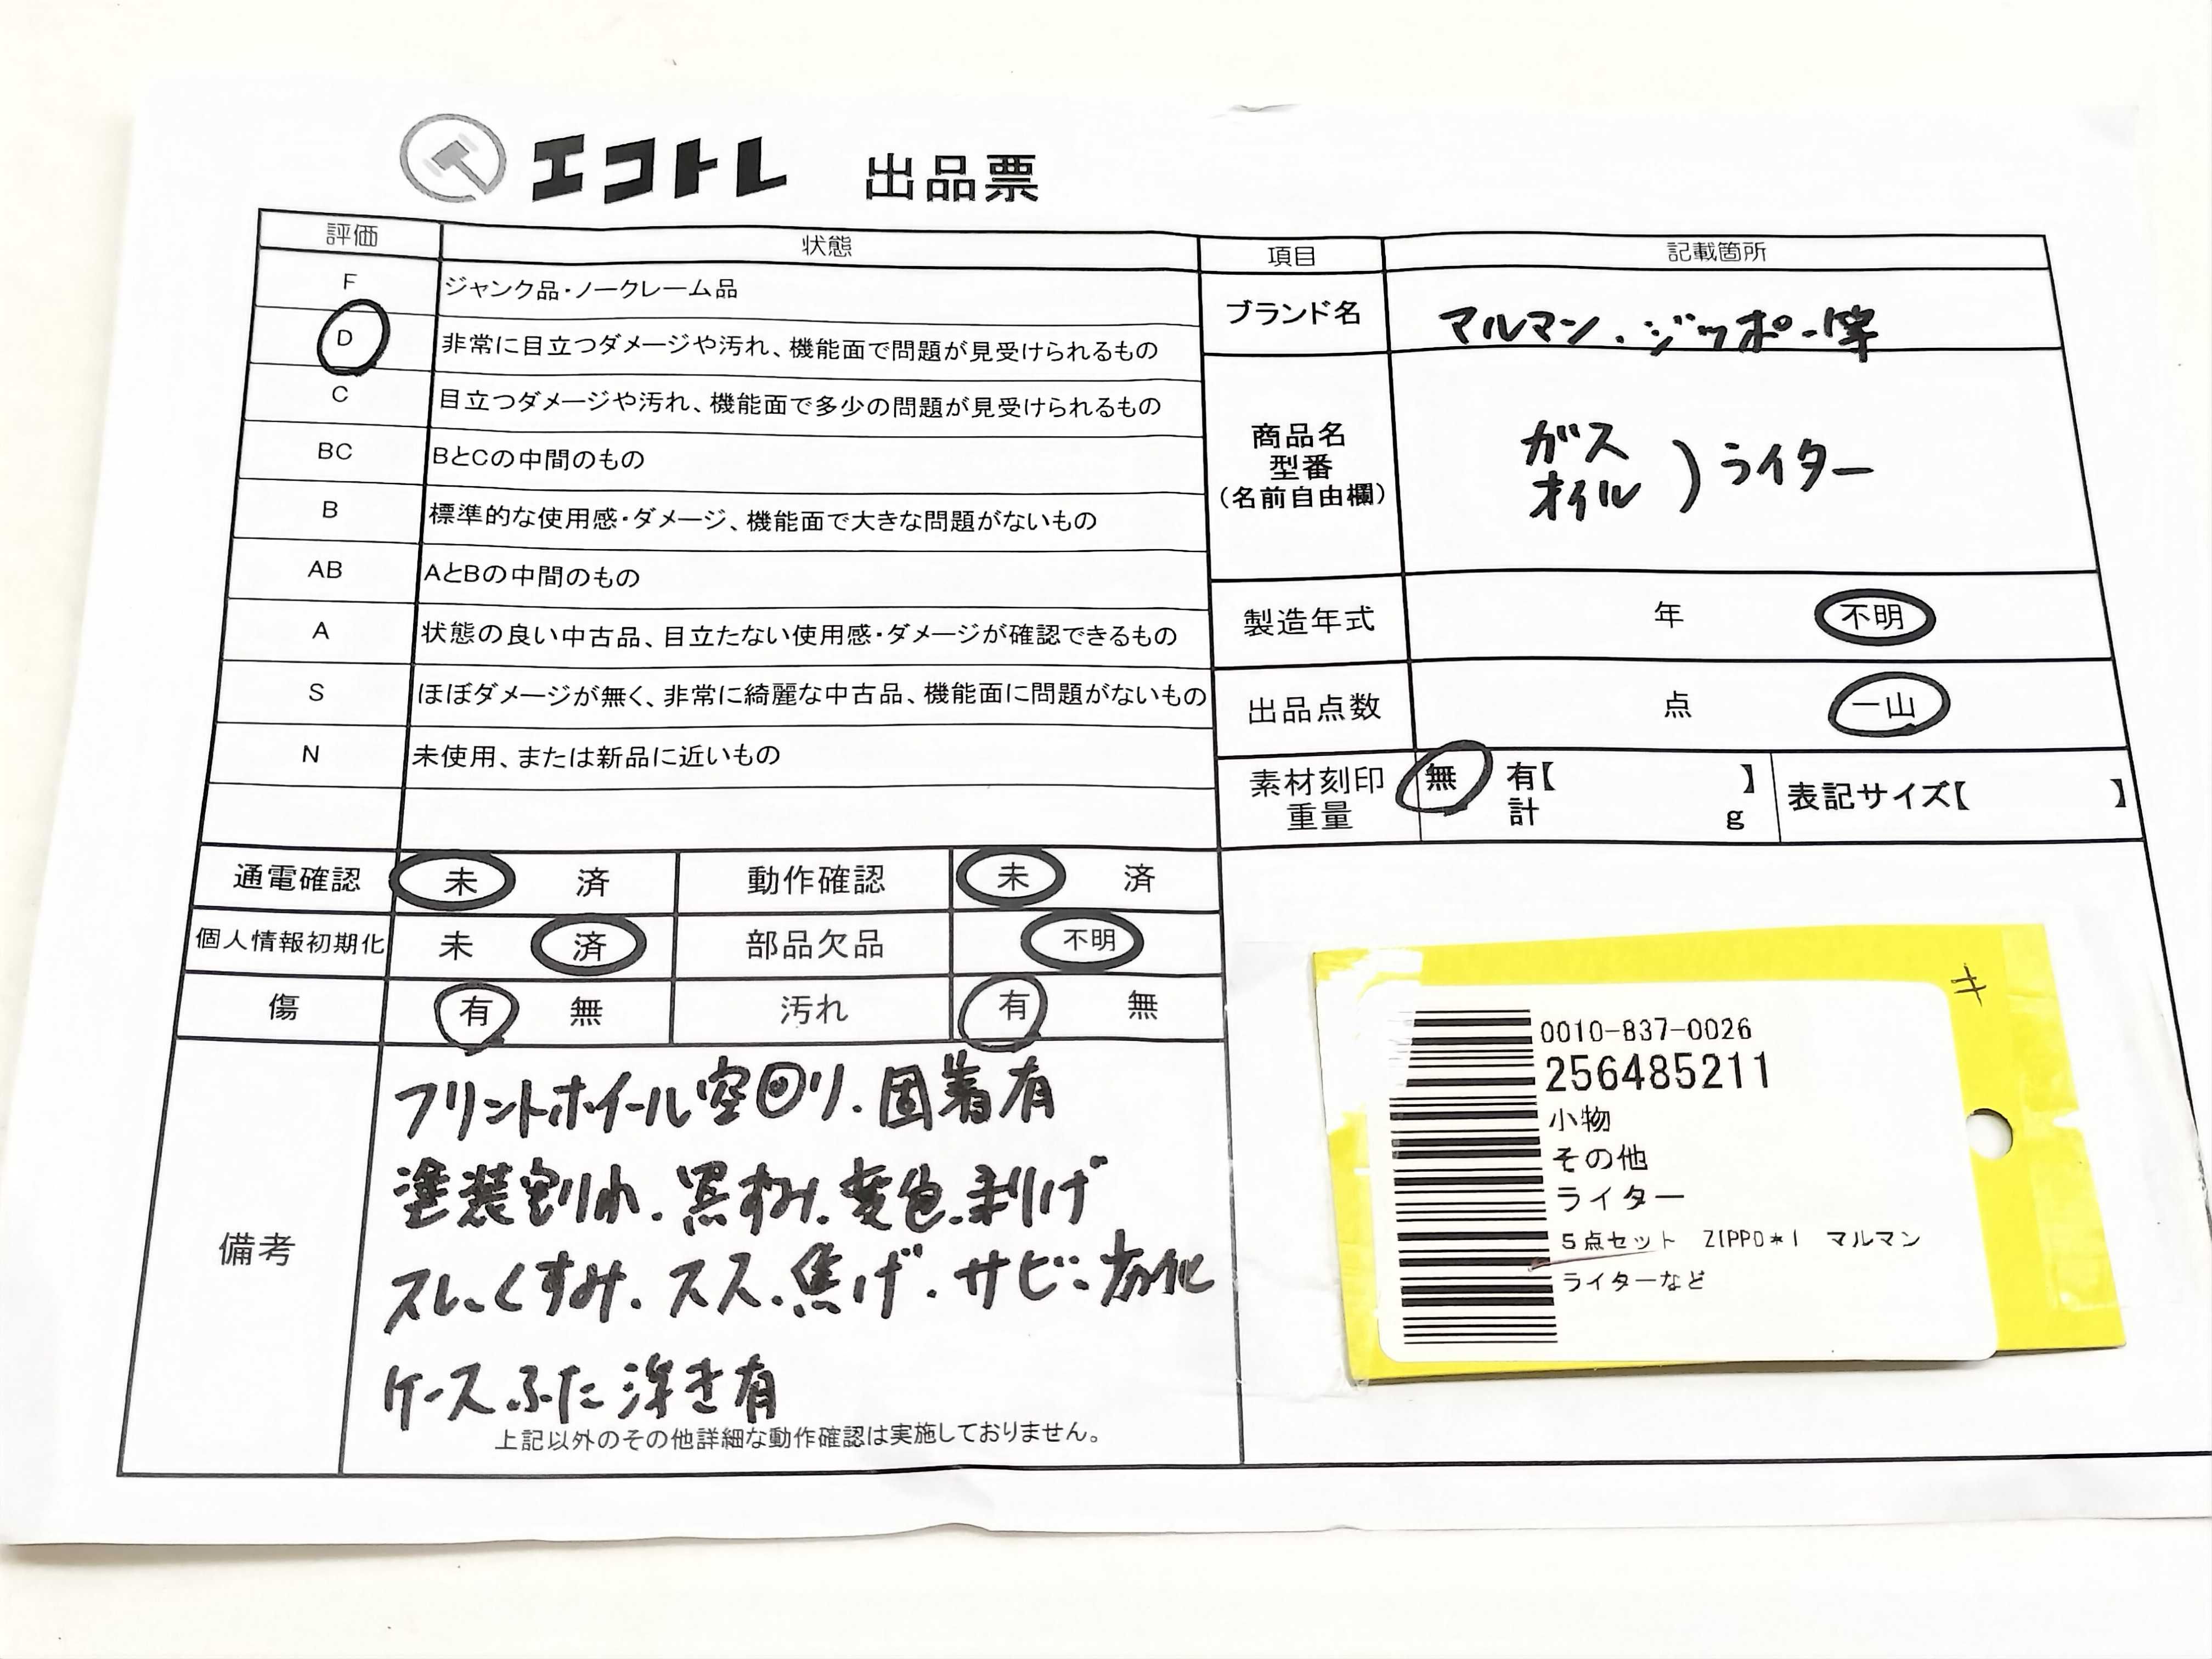 エコトレ 出品票
評価 状態
F ジャンク品・ノークレーム品
D 非常に目立つダメージや汚れ、機能面で問題が見受けられるもの
C 目立つダメージや汚れ、機能面で多少の問題が見受けられるもの
BC BとCの中間のもの
B 標準的な使用感・ダメージ、機能面で大きな問題がないもの
AB AとBの中間のもの
A 状態の良い中古品、目立たない使用感・ダメージが確認できるもの
S ほぼダメージが無く、非常に綺麗な中古品、機能面に問題がないもの
N 未使用、または新品に近いもの
通電確認 未 済 動作確認 未 済
個人情報初期化 未 済 部品欠品 不明
傷 有 無 汚れ 有 無
備考
フリントホイール空回り.固着有
塗装割れ.黒ずみ.変色.剥げ
スレ.くすみ.スス.焦げ.サビ.劣化
ケースふた浮き有
上記以外のその他詳細な動作確認は実施しておりません。
項目 記載箇所
ブランド名 マルマン.ジッポー等
商品名
型番
(名前自由欄)
ガス
オイル
)ライター
製造年式 年 不明
出品点数 点 一山
素材刻印 無 有【 】
重量 計 g
表記サイズ【 】
キ
0010-837-0026
256485211
小物
その他
ライター
5点セット ZIPPO*1 マルマン
ライターなど